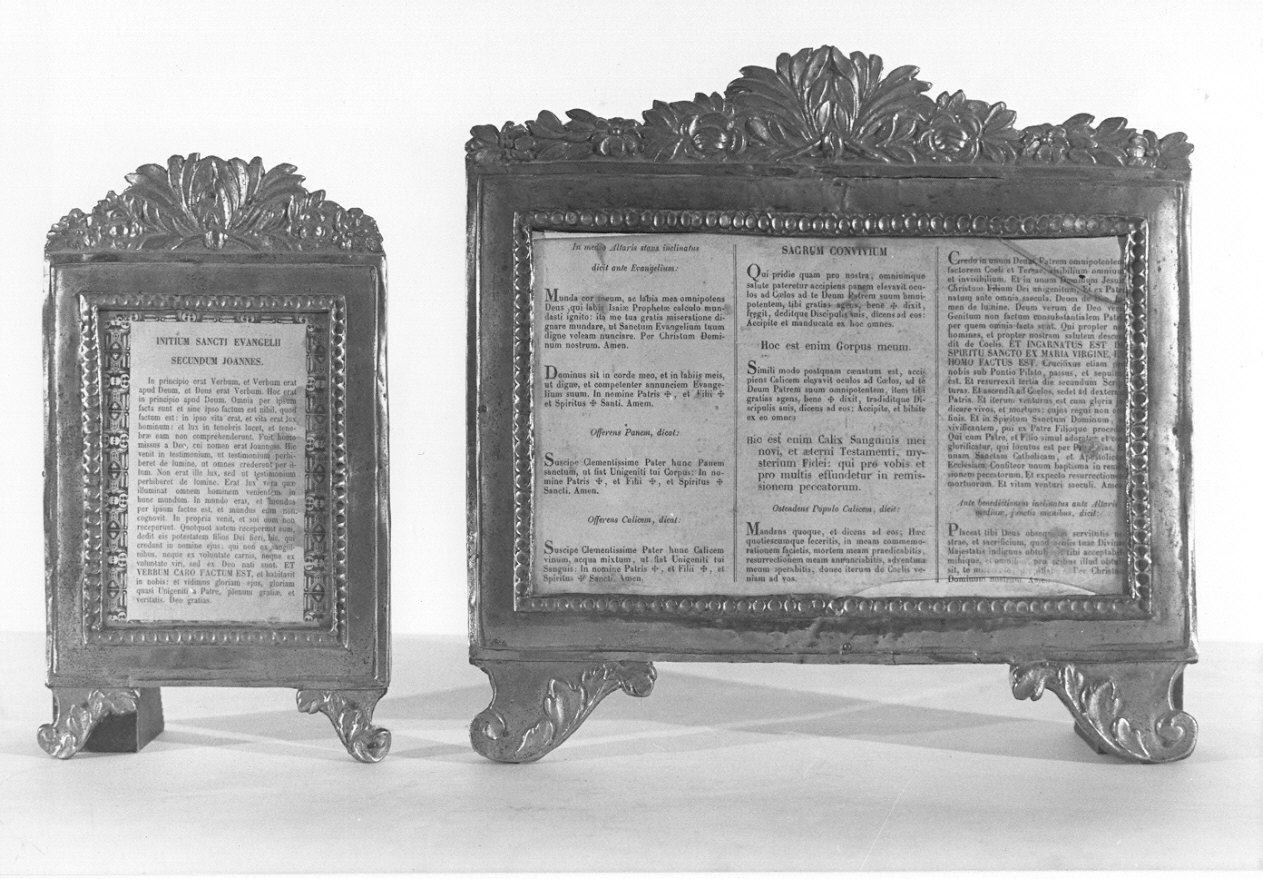 INITIUM SANCTI EVANGELII
SECUNDUM JOANNES.
In principio erat Verbum, et Verbum erat
apud Deum, et Deus erat Verbum. Hoc erat
in principio apud Deum. Omnia per ipsum
facta sunt et sine ipso factum est nihil, quod
factum est: in ipso vita erat, et vita erat lux
hominum: et lux in tenebris lucet, et tene-
bræ eam non comprehenderunt. Fuit homo
missus a Deo, cui nomen erat Joannes. Hic
venit in testimonium, ut testimonium perhi-
beret de lumine, ut omnes crederent per il-
lum. Non erat ille lux, sed ut testimonium
perhiberet de lumine. Erat lux vera quæ
illuminat omnem hominem venientem in
hunc mundum. In mundo erat, et mundus
per ipsum factus est, et mundus eum non
cognovit. In propria venit, et sui eum non
receperunt. Quotquot autem receperunt eum,
dedit eis potestatem filios Dei fieri, his, qui
credunt in nomine ejus: qui non ex sangui-
nibus, neque ex voluntate carnis, neque ex
voluntate viri, sed ex Deo nati sunt. ET
VERBUM CARO FACTUM EST, et habitavit
in nobis: et vidimus gloriam ejus, gloriam
quasi Unigeniti a Patre, plenum gratiæ, et
veritatis. Deo gratias.
In medio Altaris stans inclinatus
dicit ante Evangelium:
Munda cor meum, ac labia mea omnipotens
Deus, qui labia Isaiæ Prophetæ calculo mun-
dasti ignito: ita me tua gratis miseratione di-
gnare mundare, ut Sanctum Evangelium tuum
digne valeam nunciare. Per Christum Domi-
num nostrum. Amen.
Dominus sit in corde meo, et in labiis meis,
ut digne, et competenter annunciem Evange-
lium suum. In nomine Patris ✠, et Filii ✠
et Spiritus ✠ Sancti. Amen.
Offerens Panem, dicat:
Suscipe Clementissime Pater hunc Panem
sanctum, ut fiat Unigeniti tui Corpus: In no-
mine Patris ✠, et Filii ✠, et Spiritus ✠
Sancti. Amen.
Offerens Calicem, dicat:
Suscipe Clementissime Pater hunc Calicem
vinum, acqua mixtum, ut fiat Unigeniti tui
Sanguis: In nomine Patris ✠, et Filii ✠, et
Spiritus ✠ Sancti. Amen.
SACRUM CONVIVIUM
Qui pridie quam pro nostra, omniumque
salute pateretur accipiens panem elevavit ocu-
los ad Cœlos ad te Deum Patrem suum omni-
potentem, tibi gratias agens, bene ✠ dixit,
fregit, deditque Discipulis suis, dicens ad eos:
Accipite et manducate ex hoc omnes.
Hoc est enim Corpus meum.
Simili modo postquam cœnatum est, acci-
piens Calicem elevavit oculos ad Cœlos, ad te
Deum Patrem suum omnipotentem, item tibi
gratias agens, bene ✠ dixit, traditidque Di-
scipulis suis, dicens ad eos: Accipite, et bibite
ex eo omnes
Hic est enim Calix Sanguinis mei
novi, et æterni Testamenti, my-
sterium Fidei: qui pro vobis et
pro multis effundetur in remis-
sionem peccatorum.
Ostendens Populo Calicem, dicit:
Mandans quoque, et dicens ad eos; Hæc
quotiescumque feceritis, in meam commemo-
rationem facietis, mortem meam prædicabitis,
resurrectionem meam annunciabitis, adventum
meum sperabitis, donec iterum de Cœlis ve-
niam ad vos.
Credo in unum Deum Patrem omnipotentem
factorem Coeli et Terrae, visibilium omnium
et invisibilium. Et in unum Dominum Jesum
Christum Filium Dei unigenitum. Et ex Patre
natum ante omnia saecula. Deum de
men de lumine. Deum verum de Deo ver
Genitum non factum consubstantialem Patri
per quem omnia facta sunt. Qui propter n
homines, et propter nostram salutem descen
dit de Coelis. ET INCARNATUS EST D
SPIRITU SANCTO EX MARIA VIRGINE, E
HOMO FACTUS EST. Crucifixus etiam pro
nobis sub Pontio Pilato, passus, et sepul
est. Et resurrexit tertia die secundum Scri
turas. Et ascendit ad Coelos, sedet ad dexter
Patris. Et iterum venturus est cum gloria
dicare vivos, et mortuos: cujus regni non e
finis. Et in Spiritum Sanctum Dominum
vivificantem, qui ex Patre Filioque proced
Qui cum Patre, et Filio simul adoratur et co
glorificatur, qui locutus est per Prophetas.
unam Sanctam Catholicam, et Apostolica
Ecclesiam Confiteor unum baptisma in remis
sionem peccatorum. Et expecto resurrectione
mortuorum. Et vitam venturi saeculi. Amen
Ante benedictionem inclinatus ante Altaris
medium, junctis manibus, dicit:
Placeat tibi Deus obsequium servitutis no
strae, et sacrificium, quod oculis tuae Divin
Majestatis indignus obtuli tibi acceptabil
mihique, et omnibus pro quibus illud obtu
sit, te Per Christum
Dominum nostrum. Amen.